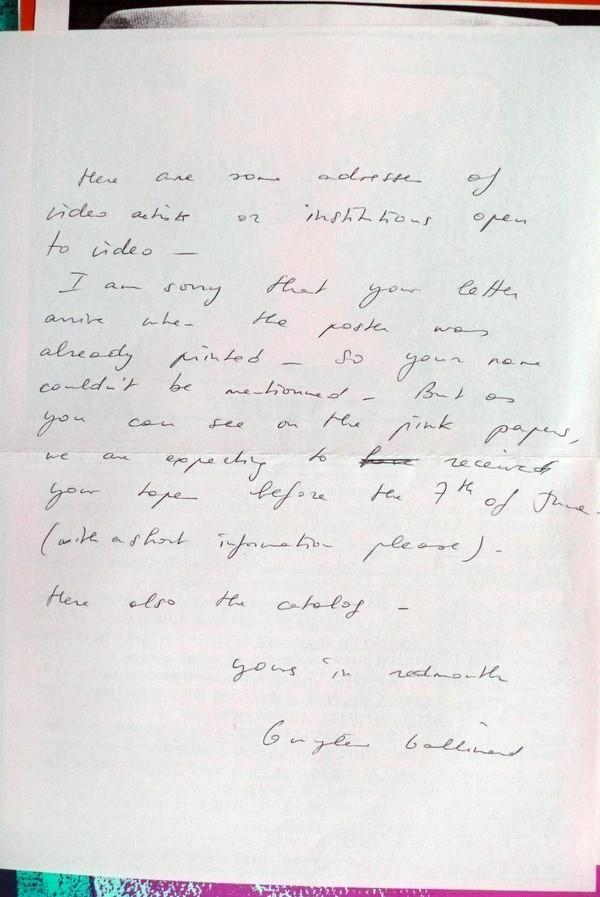 Here are some adresses of
video artists or institutions open
to video —
I am sorry that your letter
arrive when the poster was
already printed — So your name
couldn't be mentionned — But as
you can see on the pink papers,
we are expecting to have received
your tapes before the 7th of June.
(with a short information please).
Here also the catalog —
yours in